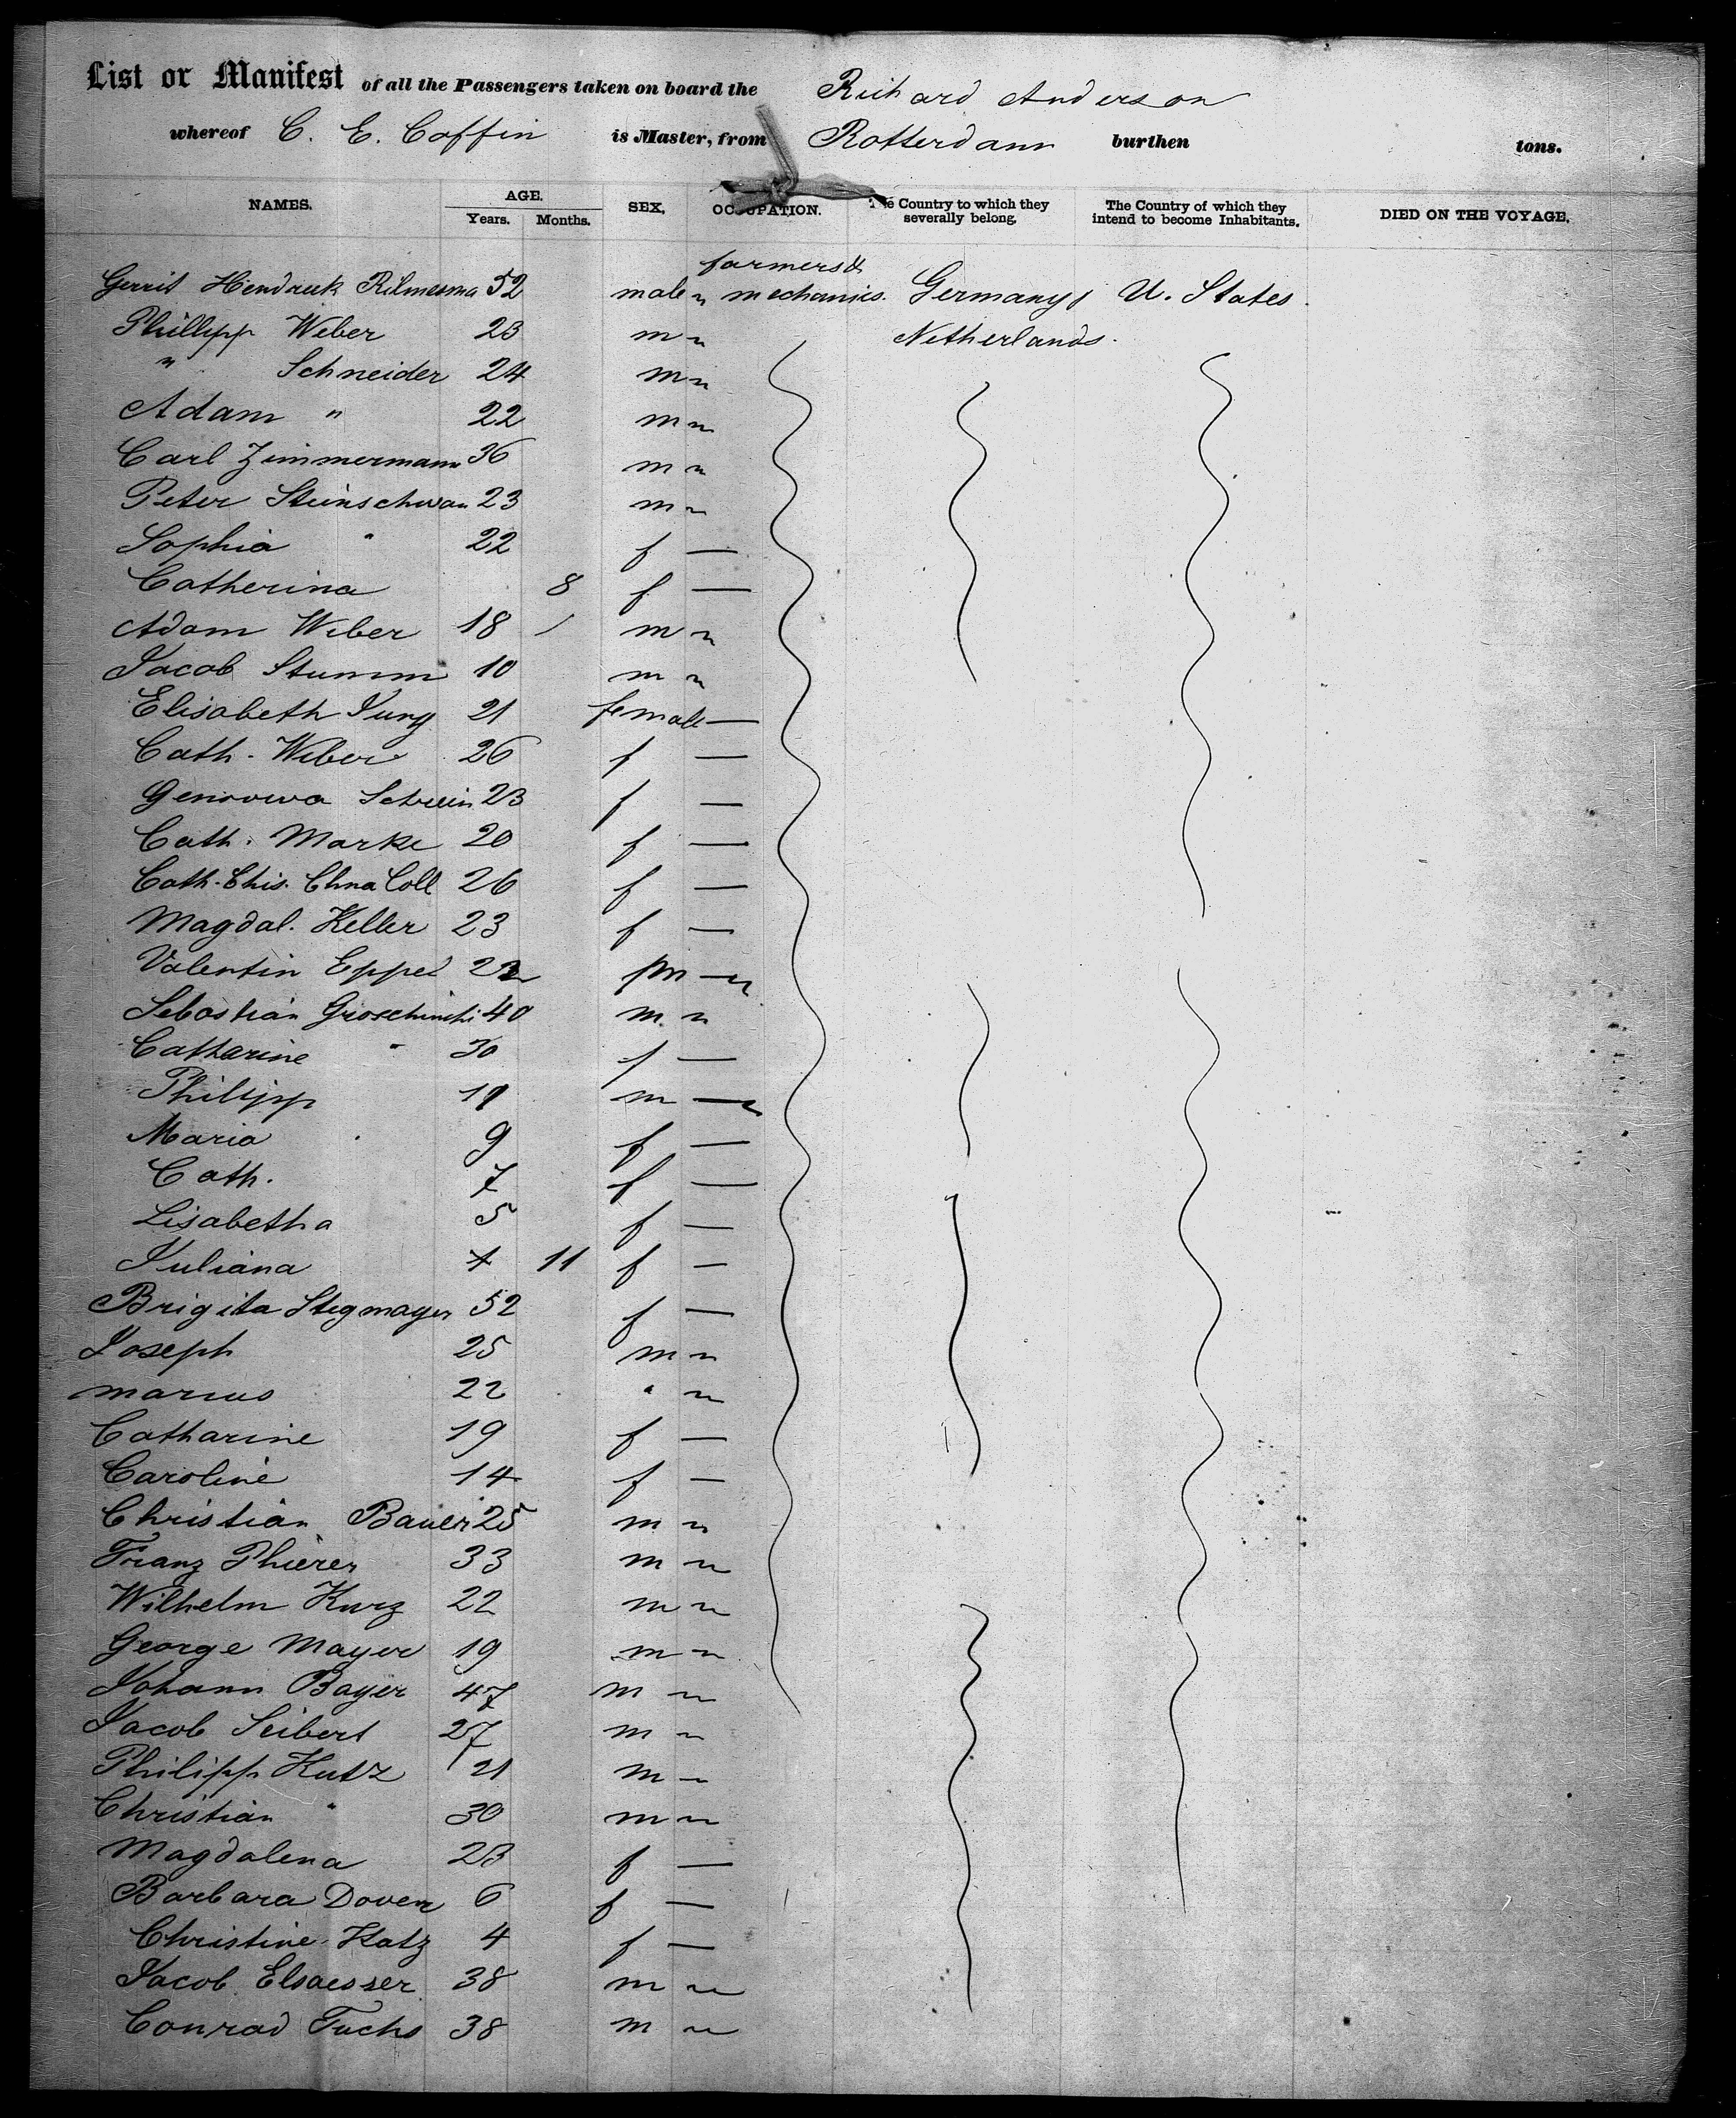 List or Manifest of all the Passengers taken on board the Richard Anderson
whereof C. E. Coffin is Master, from Rotterdam burthen tons.
NAMES. AGE. Years. Months. SEX. OCCUPATION. The Country to which they severally belong. The Country of which they intend to become Inhabitants. DIED ON THE VOYAGE.
farmers &
Gerrit Hendreek 52 male " mechanics. Germany, U. States.
Phillipp Weber 23 m " Netherlands.
" Schneider 24 m "
Adam " 22 m "
Carl Zimmermann 36 m "
Peter Steinschwan 23 m "
Sophia " 22 f —
Catherina 8 f —
Adam Weber 18 / m "
Jacob Stumm 10 m "
Elisabeth Jung 21 female —
Cath. Weber 26 f —
Genovwa 23 f —
Cath. Marke 20 f —
Cath. Chis. Chna Coll 26 f —
Magdal. Keller 23 f —
Valentin Eppel m — "
Sebastian 40 m "
Catharine " 30 f —
Philipp m — "
Maria 9 f —
Cath. 7 f —
Lisabetha 5 f —
Juliana 11 f —
Brigita Stegmayer 52 f —
Joseph 25 m "
marius 22 " "
Catharine 19 f —
Caroline 14 f —
Christian Bauer 25 m "
Franz Phierer 33 m "
Wilhelm Kurz 22 m "
George Mayer 19 m "
Johann Bayer 47 m "
Jacob Seibert 27 m "
Philipp Kutz 21 m "
Christian " 30 m "
Magdalena 23 f —
Barbara Dover 6 f —
Christine Katz 4 f —
Jacob Elsaesser 38 m "
Conrad Fuchs 38 m "